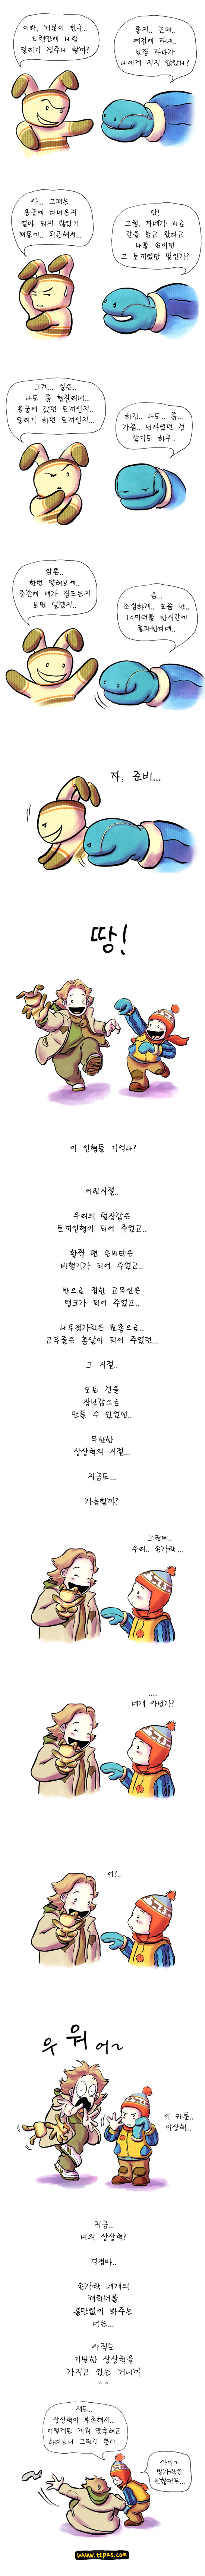 이봐, 거북이 친구..
오랜만에 나랑
달리기 경주나 할까?
좋지.. 근데..
예전에 자네..
낮잠 자다가
나에게 지지 않았나?
아... 그때는
용궁에 다녀온지
얼마 되지 않았기
때문에.. 피곤해서...
앗!
그럼, 자네가 바로
간을 놓고 왔다고
나를 속이던
그 토끼였단 말인가?
그게... 실은..
나도 좀 헷갈리네...
용궁에 갔던 토끼인지..
달리기 하던 토끼인지...
하긴.. 나도.. 좀...
가끔.. 닌자였던 것
같기도 하구..
암튼..
한번 달려보세..
중간에 네가 잠드는지
보면 알겠지..
음...
조심하게.. 요즘 난..
10미터를 한시간에
돌파한다네..
자, 준비...
땅!
이 인형들 기억나?
어린시절..
우리의 털장갑은
토끼인형이 되어 주었고..
활짝 편 손바닥은
비행기가 되어 주었고..
반으로 접힌 고무신은
탱크가 되어 주었고..
나무젓가락은 권총으로..
고무줄은 총알이 되어 주었던...
그 시절..
모든 것을
장난감으로
만들 수 있었던..
무한한
상상력의 시절...
지금도...
가능할까?
그런데..
우리.. 손가락...
.....
네개 아닌가?
어?..
우워어~
이 카툰..
이상해..
지금..
너의 상상력?
걱정마..
손가락 네개의
캐릭터를
불만없이 봐주는
너는...
아직도
기발한 상상력을
가지고 있는 거니까
^^
쟤도..
상상력이 부족해서...
어떻게든 끼워 맞추려고
하다보니 그런것 뿐야..
아이~
발가락은
괜찮대두...